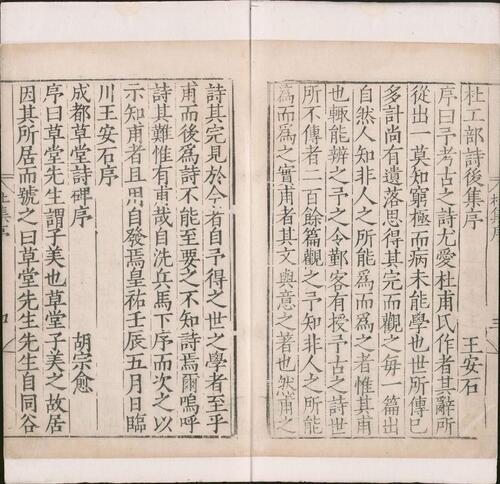 杜工部詩後集序
王安石
序曰予考古之詩尤愛杜甫氏作者其辭所
從出一莫知窮極而病未能學也世所傳已
多計尚有遺落思得其完而觀之每一篇出
自然人知非人之所能爲而爲之者惟其甫
也輒能辨之予之令鄞客有授予古之詩世
所不傳者二百餘篇觀之予知非人之所能
爲而爲之實甫者其文與意之著也然甫之
詩其完見於今者自予得之世之學者至乎
甫而後爲詩不能至要之不知詩焉爾嗚呼
詩其難惟有甫哉自洗兵馬下序而次之以
示知甫者且用自發焉皇祐壬辰五月日臨
川王安石序
成都草堂詩碑序
胡宗愈
序曰草堂先生謂子美也草堂子美之故居
因其所居而號之曰草堂先生先生自同谷